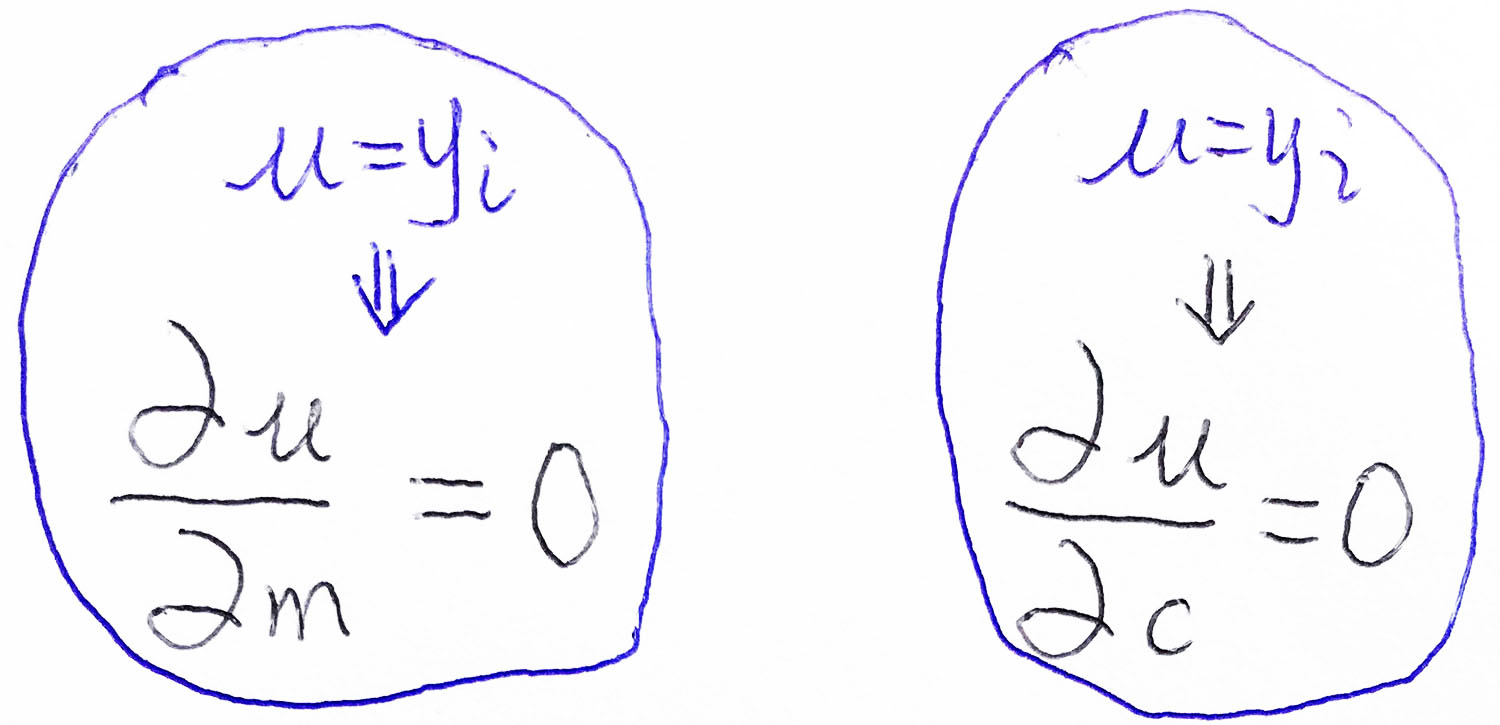 u = y_i
⇓
∂u/∂m = 0
u = y_i
⇓
∂u/∂c = 0